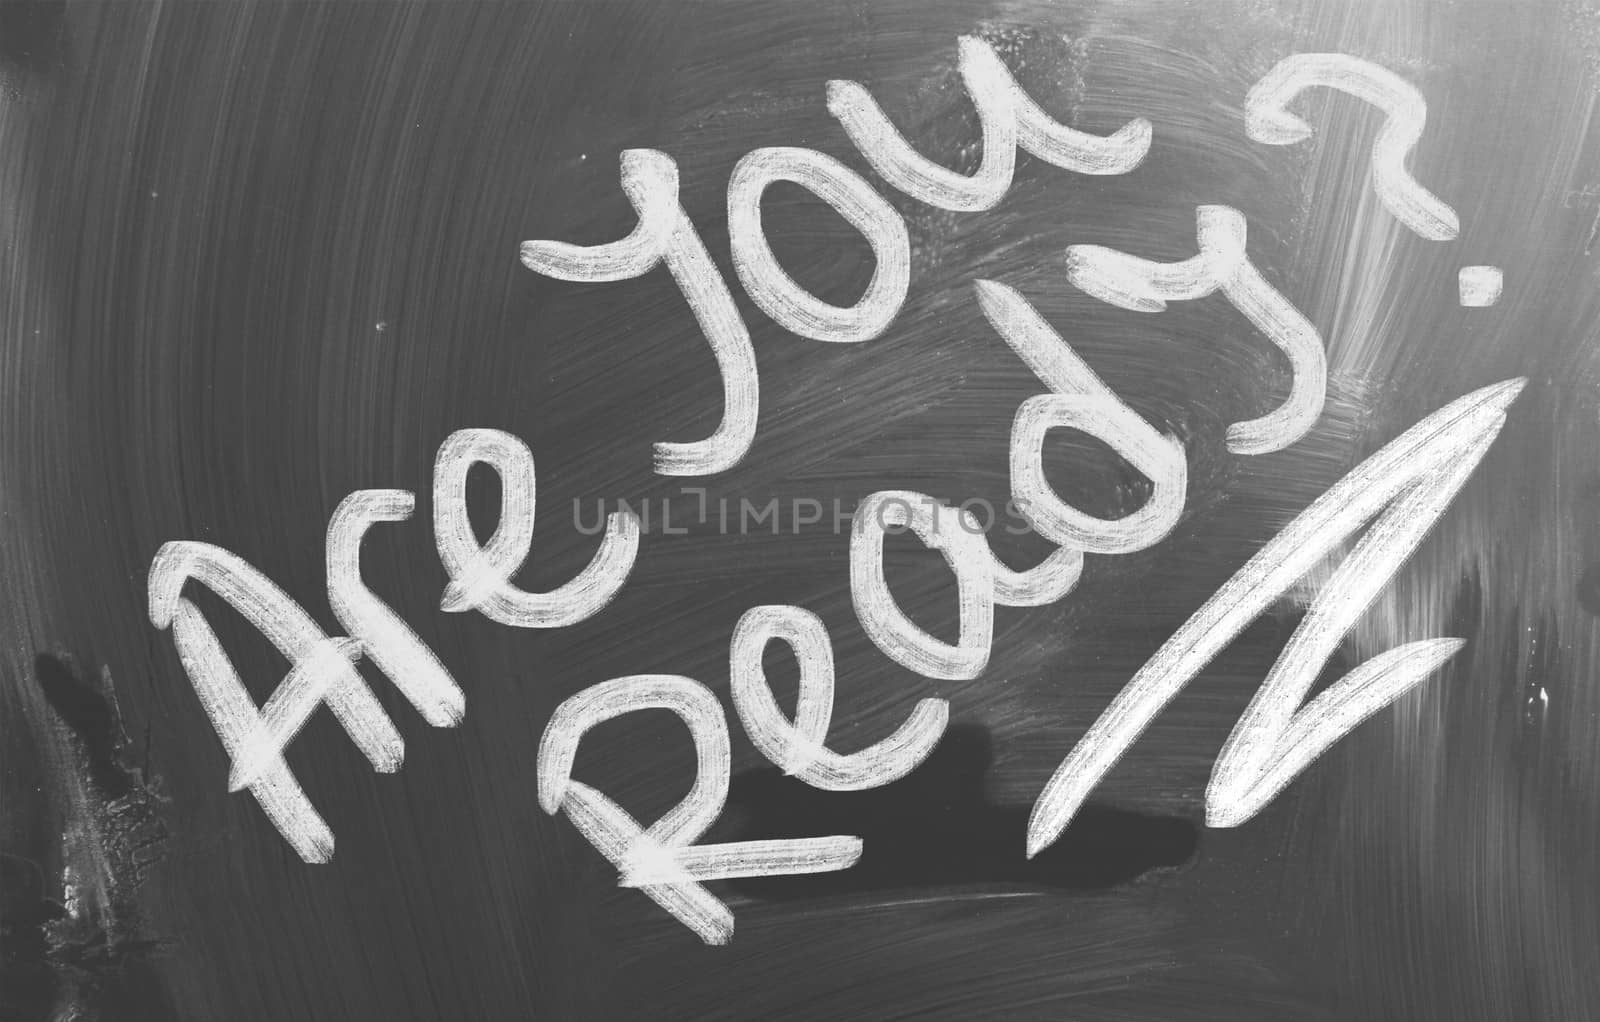 Are you
Ready?
UNLIMPHOTOS